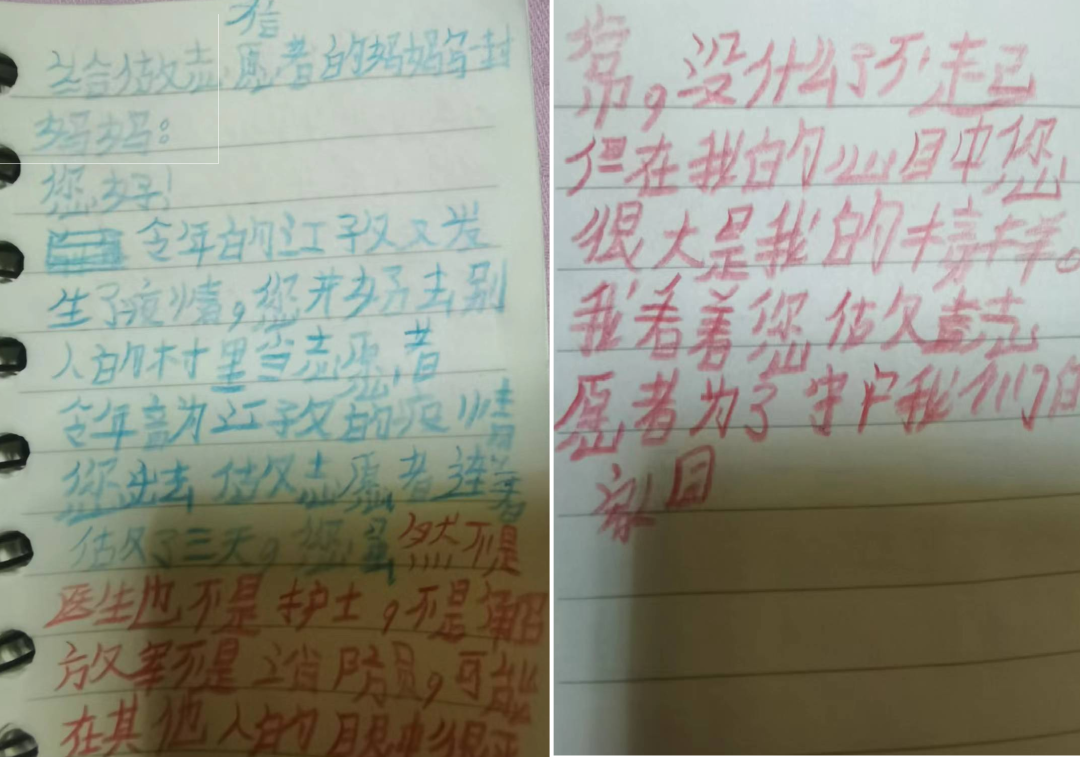 信
给做志愿者的妈妈写封
妈妈：
您好！
今年的江孜又发
生了疫情，您并好去别
人的村里当志愿者
今年为江孜的疫情
您出去做志愿者连着
做了三天，您虽然不是
医生也不是护士，不是解
放军不是消防员，可能
在其他人的眼中很平
常，没什么了不起
但在我的心目中您
很大是我的榜样。
我看着您做志
愿者为了守户我们的
家园